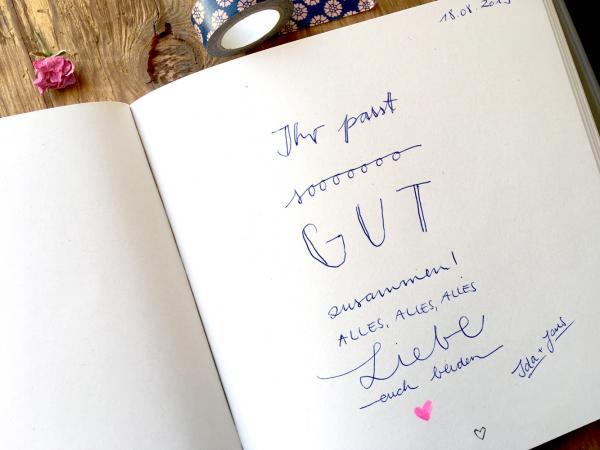 18.08.201
Ihr passt
sooooooo
GUT
zusammen!
ALLES, ALLES, ALLES
Liebe
euch beiden
Ida + Jans